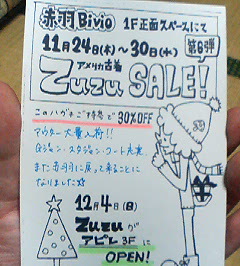 赤羽Bivio 1F正面スペースにて
11月24日(木)~30日(水)
第6弾
アメリカ古着
ZUZU SALE!
このハガキご持参で30%OFF
アウター大量入荷!!
ジャン・スタジャン・コート充実
また赤羽に戻って来ることに
なりました
12月4日(日)
ZUZUが
アピレ3Fに
OPEN!